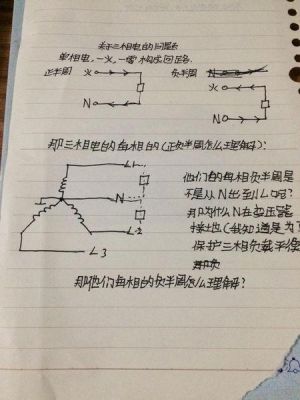 关于三相电的问题
单相电，一火，一零构成回路.
正半周 火
N
负半周 N
火
N
那三相电的每相的(正负半周怎么理解)：
L1
N
L2
L3
他们的每相负半周是
不是从N出到L呢？
那为什么N在变压器
接地(我知道是为了
保护三相负载平衡
那他们每相的负半周怎么理解？